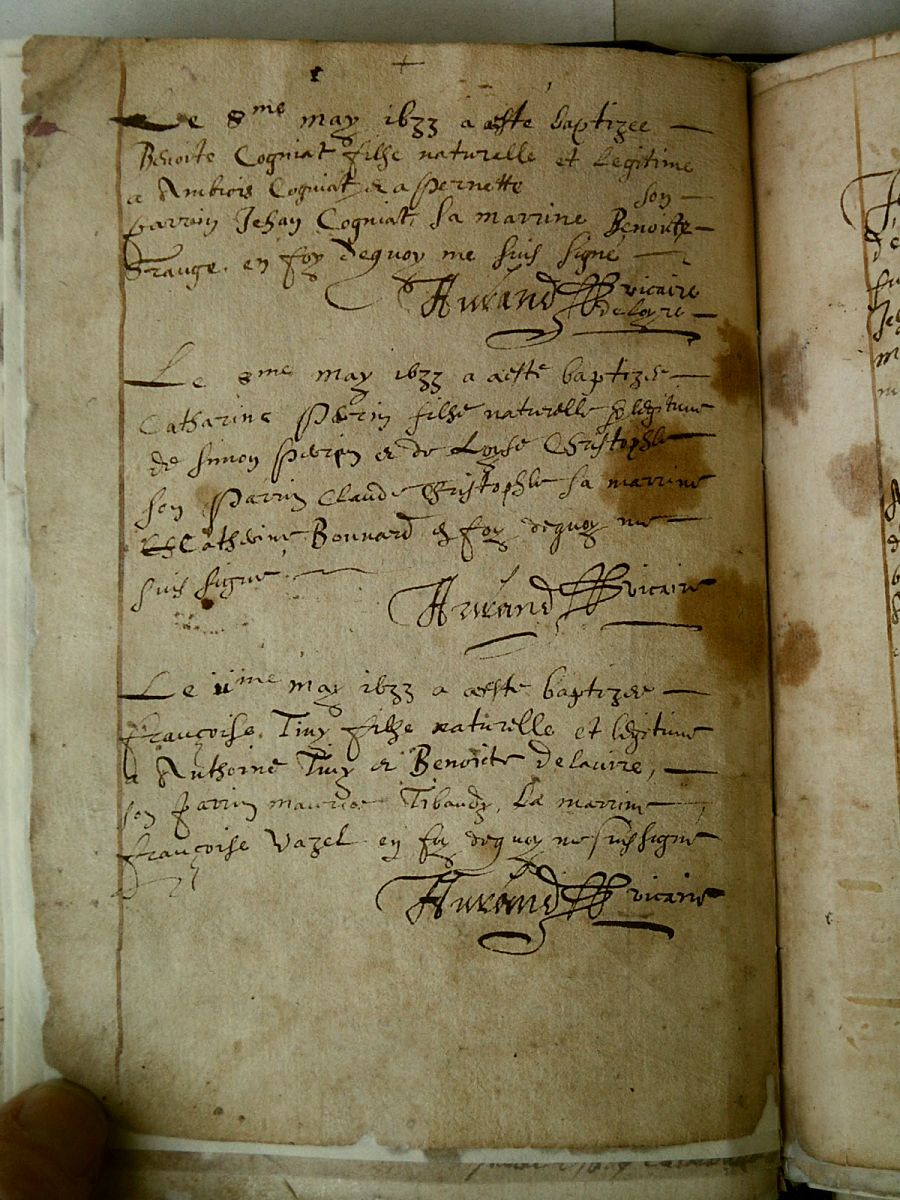 Le 8me may 1633 a esté baptizee
Benoite Cogniat filhe naturelle et Legitime
a Ambrois Cogniat & a Pernette
son
parrin Jehan Cogniat, sa marrine Benoite
en foy dequoy me suis signé
vicaire
de Loyre
Le 8me may 1633 a aesté baptizee
Catharine Perrin filhe naturelle & legitime
de simon Perrin & de Loyse Christophle
son Parrin Claude Christophle sa marrine
Catherine Bonnard en foy dequoy me
suis signé
vicaire
Le 11me may 1633 a aesté baptizee
françoise Tiny filhe naturelle et legitime
a Anthoine Tiny & Benoicte
son parrin maurice Tibaudy, La marrine
françoise Vazel en foy dequoy me suis signé
vicaire